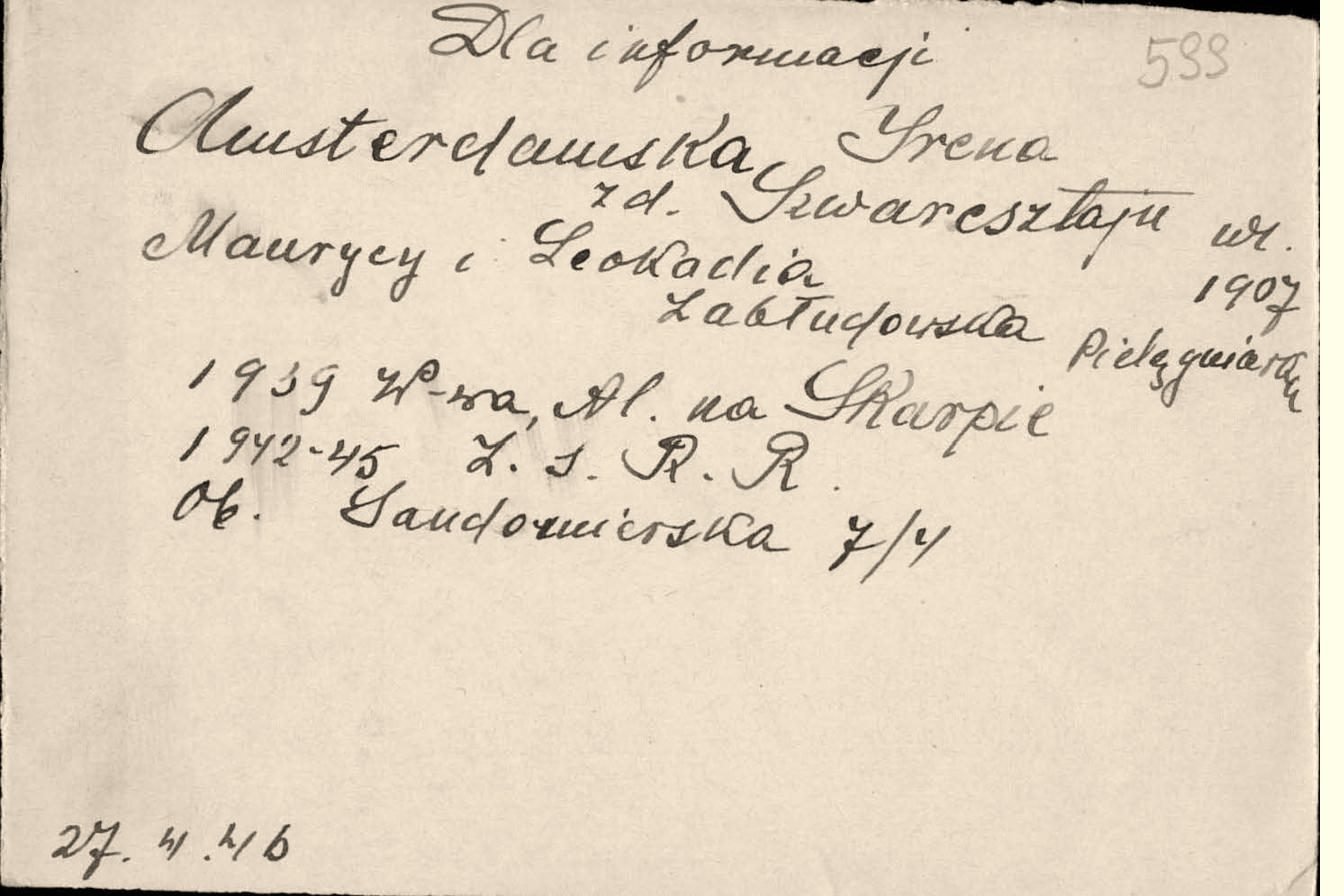 Dla informacji 599
Amsterdamska Irena
zd. Szwaresztajn ur.
Maurycy i Leokadia 1907
Zabłudowska Pielęgniarka
1939 W-wa, Al. na Skarpie
1942-45 Z. S. R. R.
Ob. Sandomierska 7/4
27. 4. 46